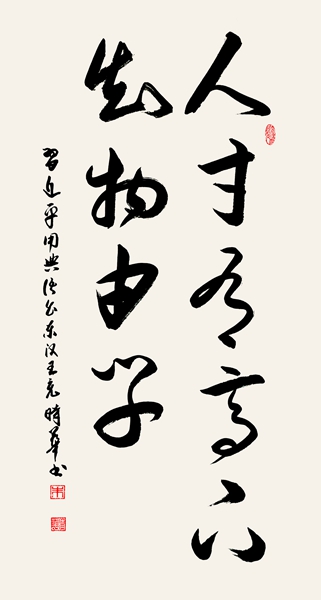 人才有高下
知物由学
习近平用典语出东汉王充 晔华书